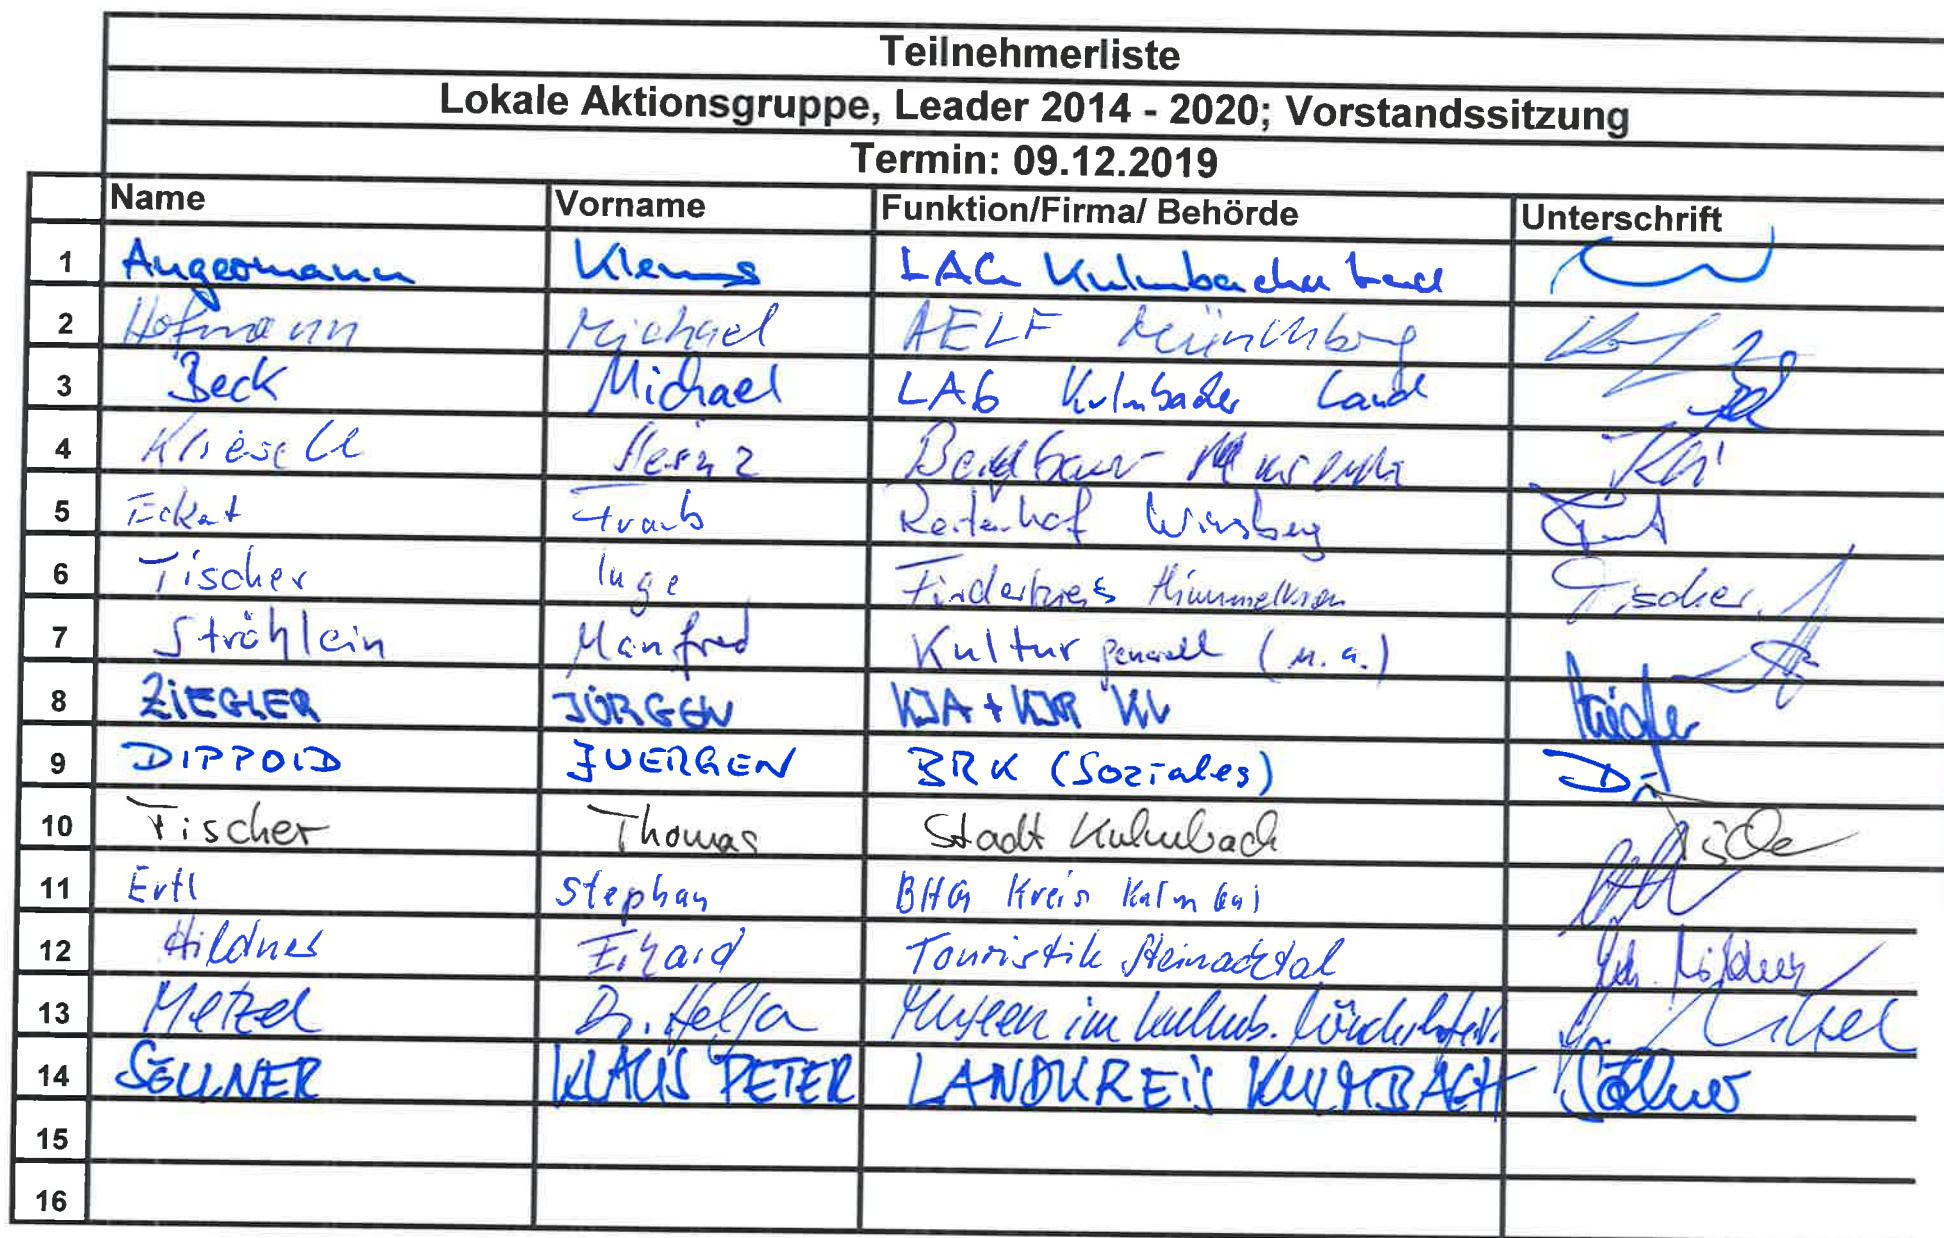 Teilnehmerliste
Lokale Aktionsgruppe, Leader 2014 - 2020; Vorstandssitzung
Termin: 09.12.2019
Name Vorname Funktion/Firma/ Behörde Unterschrift
1 Angermann Klemens LAG Kulmbacher Land
2 Hofmann Michael AELF Münchberg
3 Beck Michael LAG Kulmbacher Land
4 Heinz Museum
5 Eckert Frank Wirsberg
6 Tischer Inge Himmelkron Tischer
7 Ströhlein Manfred Kultur generell (u. a.)
8 ZIEGLER JÜRGEN KJA + KJR KU Ziegler
9 DIPPOLD JUERGEN BRK (Soziales)
10 Fischer Thomas Stadt Kulmbach
11 Ertl Stephan BHG Kreis
12 Hildner Erhard Touristik Steinachtal Hildner
13 Metzel Dr. Helga Museen im
14 SÖLLNER KLAUS PETER LANDKREIS KULMBACH Söllner
15
16